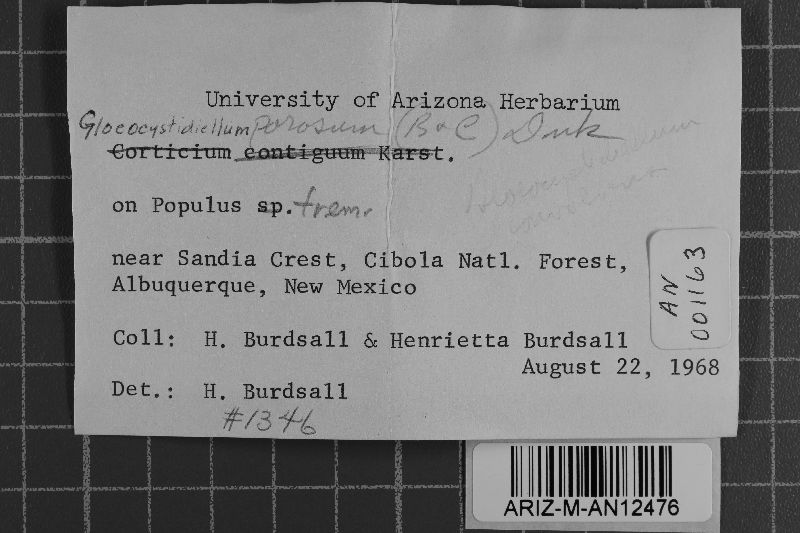 University of Arizona Herbarium
Gloeocystidiellum porosum (B & C) Donk
Corticium contiguum Karst.
on Populus sp. trem.
near Sandia Crest, Cibola Natl. Forest,
Albuquerque, New Mexico
AN
001163
Coll: H. Burdsall & Henrietta Burdsall
August 22, 1968
Det.: H. Burdsall
#1346
ARIZ-M-AN12476